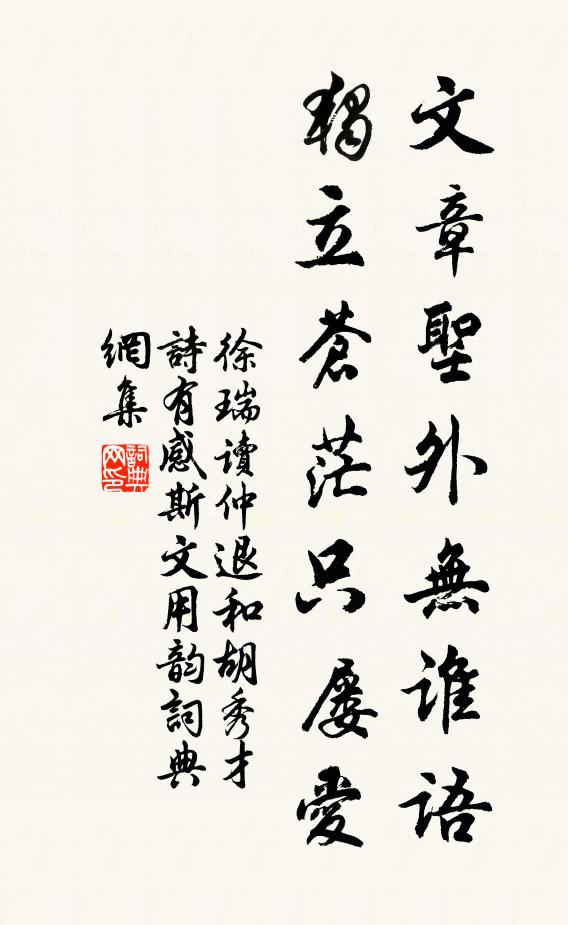 文章聖外無誰語
獨立蒼茫只屡愛
徐瑞讀仲退和胡秀才
詩有感斯文用韵詞典
網集
詞典网印